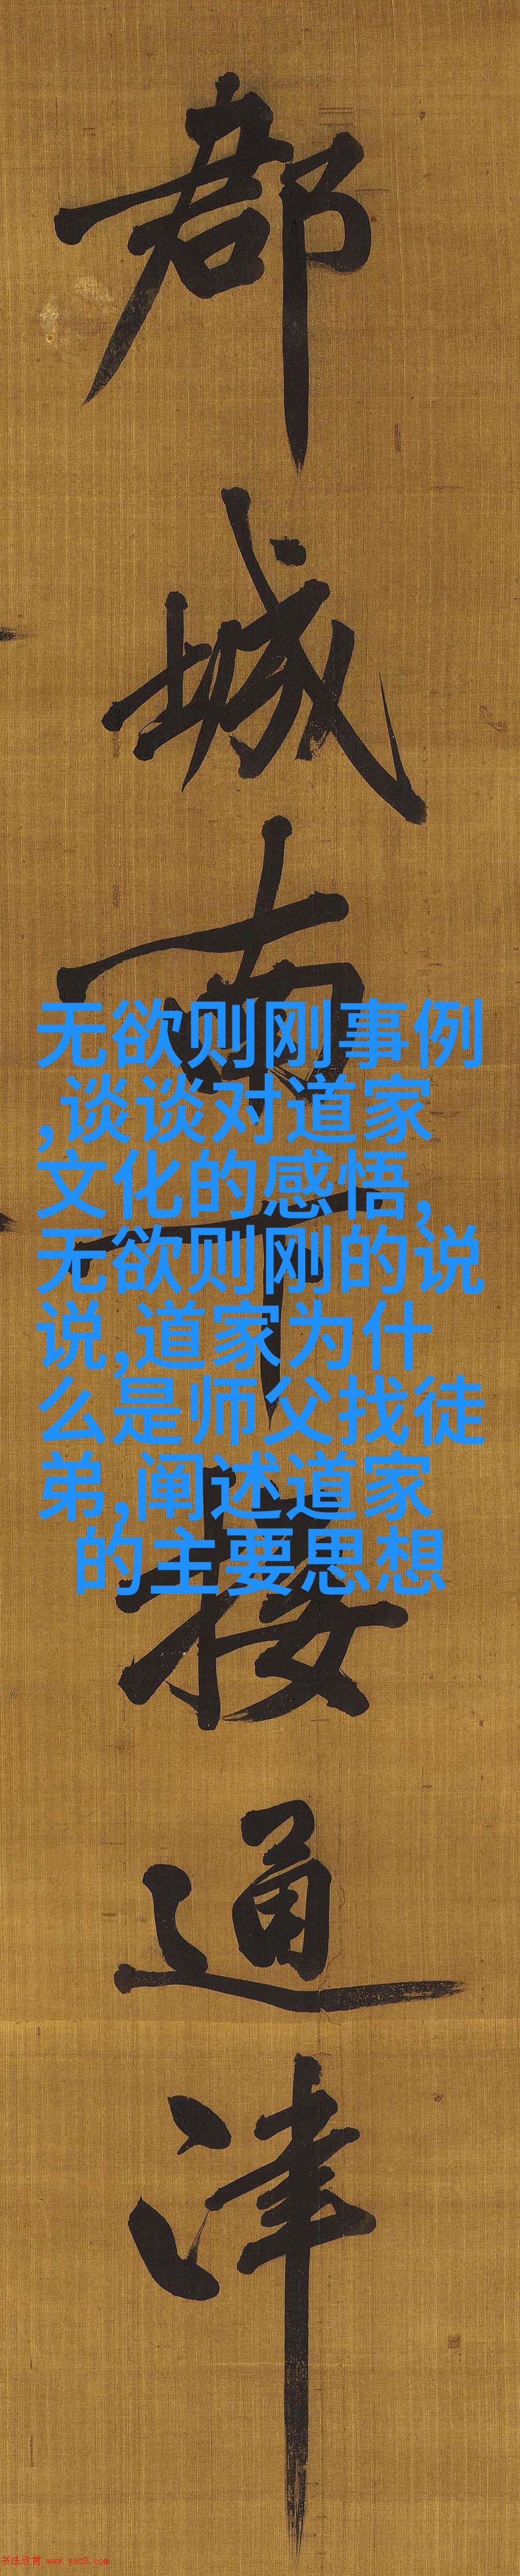 郡城南下接通津
无欲则刚事例
,谈谈对道家
文化的感悟,
无欲则刚的说
说,道家为什
么是师父找徒
弟,阐述道家
的主要思想
书法欣赏 www.yac8.com